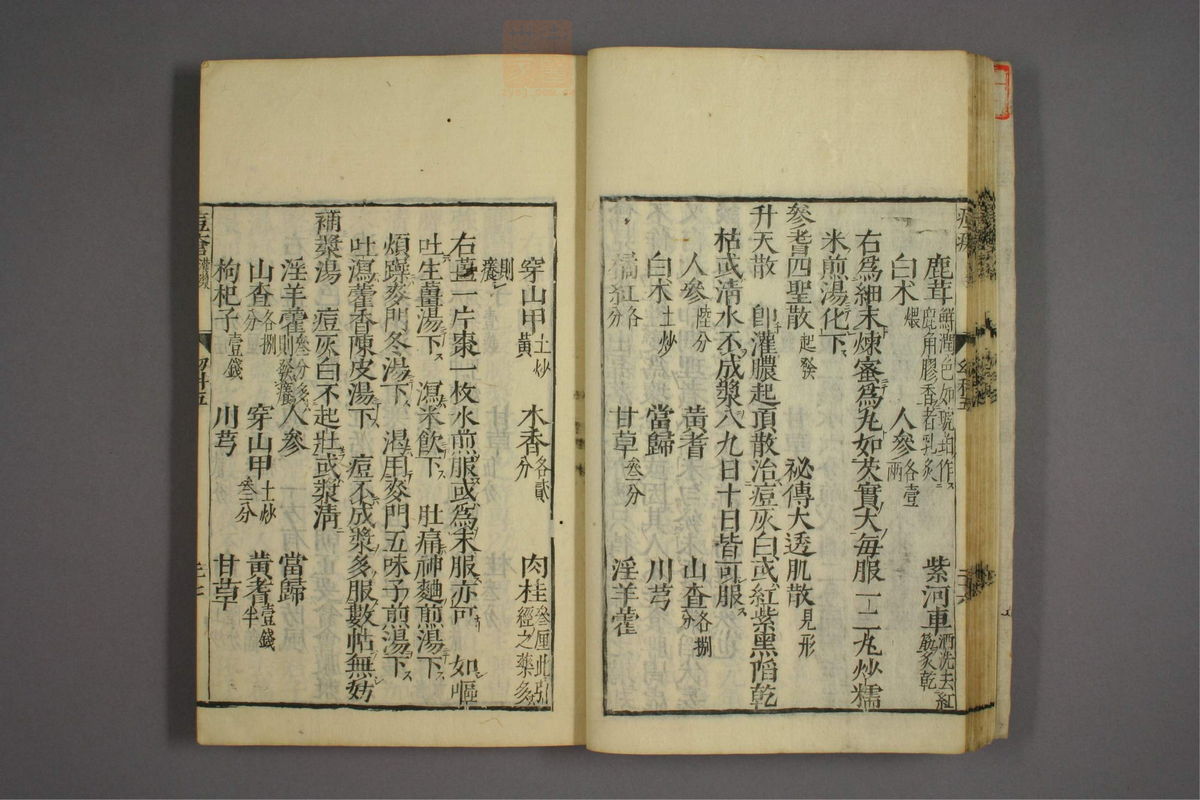 鹿茸鮮潤色如琥珀作鹿角膠香者乳炙 紫河車酒洗去紅筋炙乾
白朮煨 人參各壹兩
右爲細末煉蜜爲丸如芡實大毎服一二丸炒糯
米煎湯化下
參耆四聖散起發 祕傳大透肌散見形
升天散 卽灌膿起頂散治痘灰白或紅紫黑陷乾
枯或清水不成漿八九日十日皆可服
人參陸分 黃耆 山查各捌分
白朮土炒 當歸 川芎
橘紅各分 甘草叁分 淫羊藿
穿山甲土炒黃 木香各貳分 肉桂叁厘此引經之藥多
則癢
右薑一片棗一枚水煎服或爲末服亦可 如嘔
吐生薑湯下 瀉米飲下 肚痛神麯煎湯下
煩躁麥門冬湯下 渴用麥門五味子煎湯下
吐瀉藿香陳皮湯下 痘不成漿多服數帖無妨
補漿湯 痘灰白不起壯或漿清
淫羊藿叁分多則發癢 人參 當歸
山查各捌分 穿山甲土炒叁分 黃耆壹錢半
枸杞子壹錢 川芎 甘草